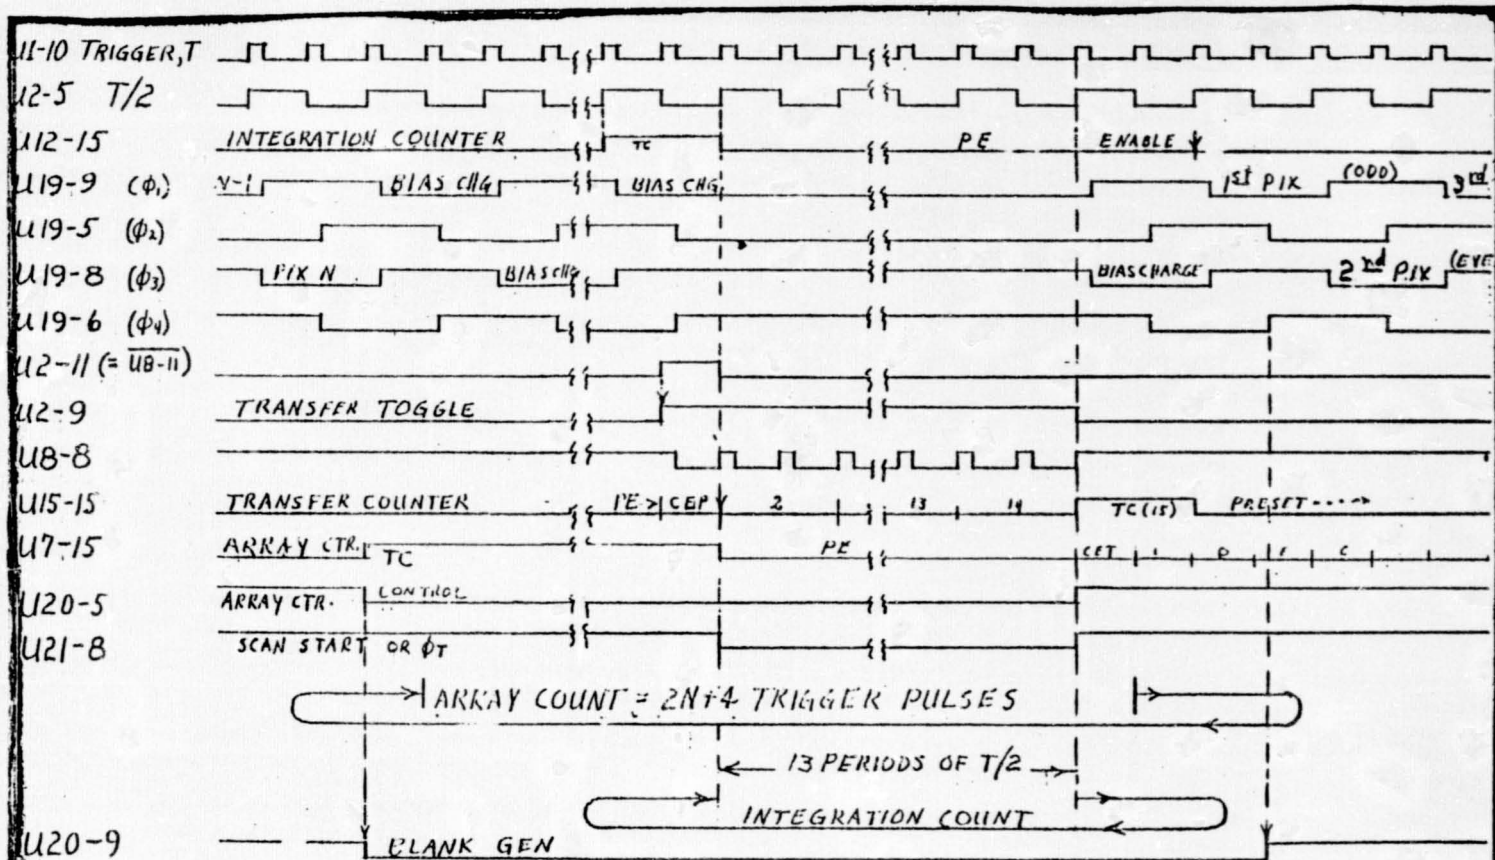 U1-10 TRIGGER,T
U2-5 T/2
U12-15 INTEGRATION COUNTER TC PE ENABLE
U19-9 (φ1) N-1 BIAS CHG BIAS CHG 1st PIX (ODD) 3rd
U19-5 (φ2)
U19-8 (φ3) PIX N BIAS CHG BIAS CHARGE 2nd PIX (EVE
U19-6 (φ4)
U2-11 (= U8-11)
U2-9 TRANSFER TOGGLE
U8-8
U15-15 TRANSFER COUNTER PE > CEP 2 13 14 TC(15) PRESET
U7-15 ARRAY CTR. TC PE CET 1 0 F C
U20-5 ARRAY CTR. CONTROL
U21-8 SCAN START OR φT
ARRAY COUNT = 2N+4 TRIGGER PULSES
13 PERIODS OF T/2
INTEGRATION COUNT
U20-9 BLANK GEN